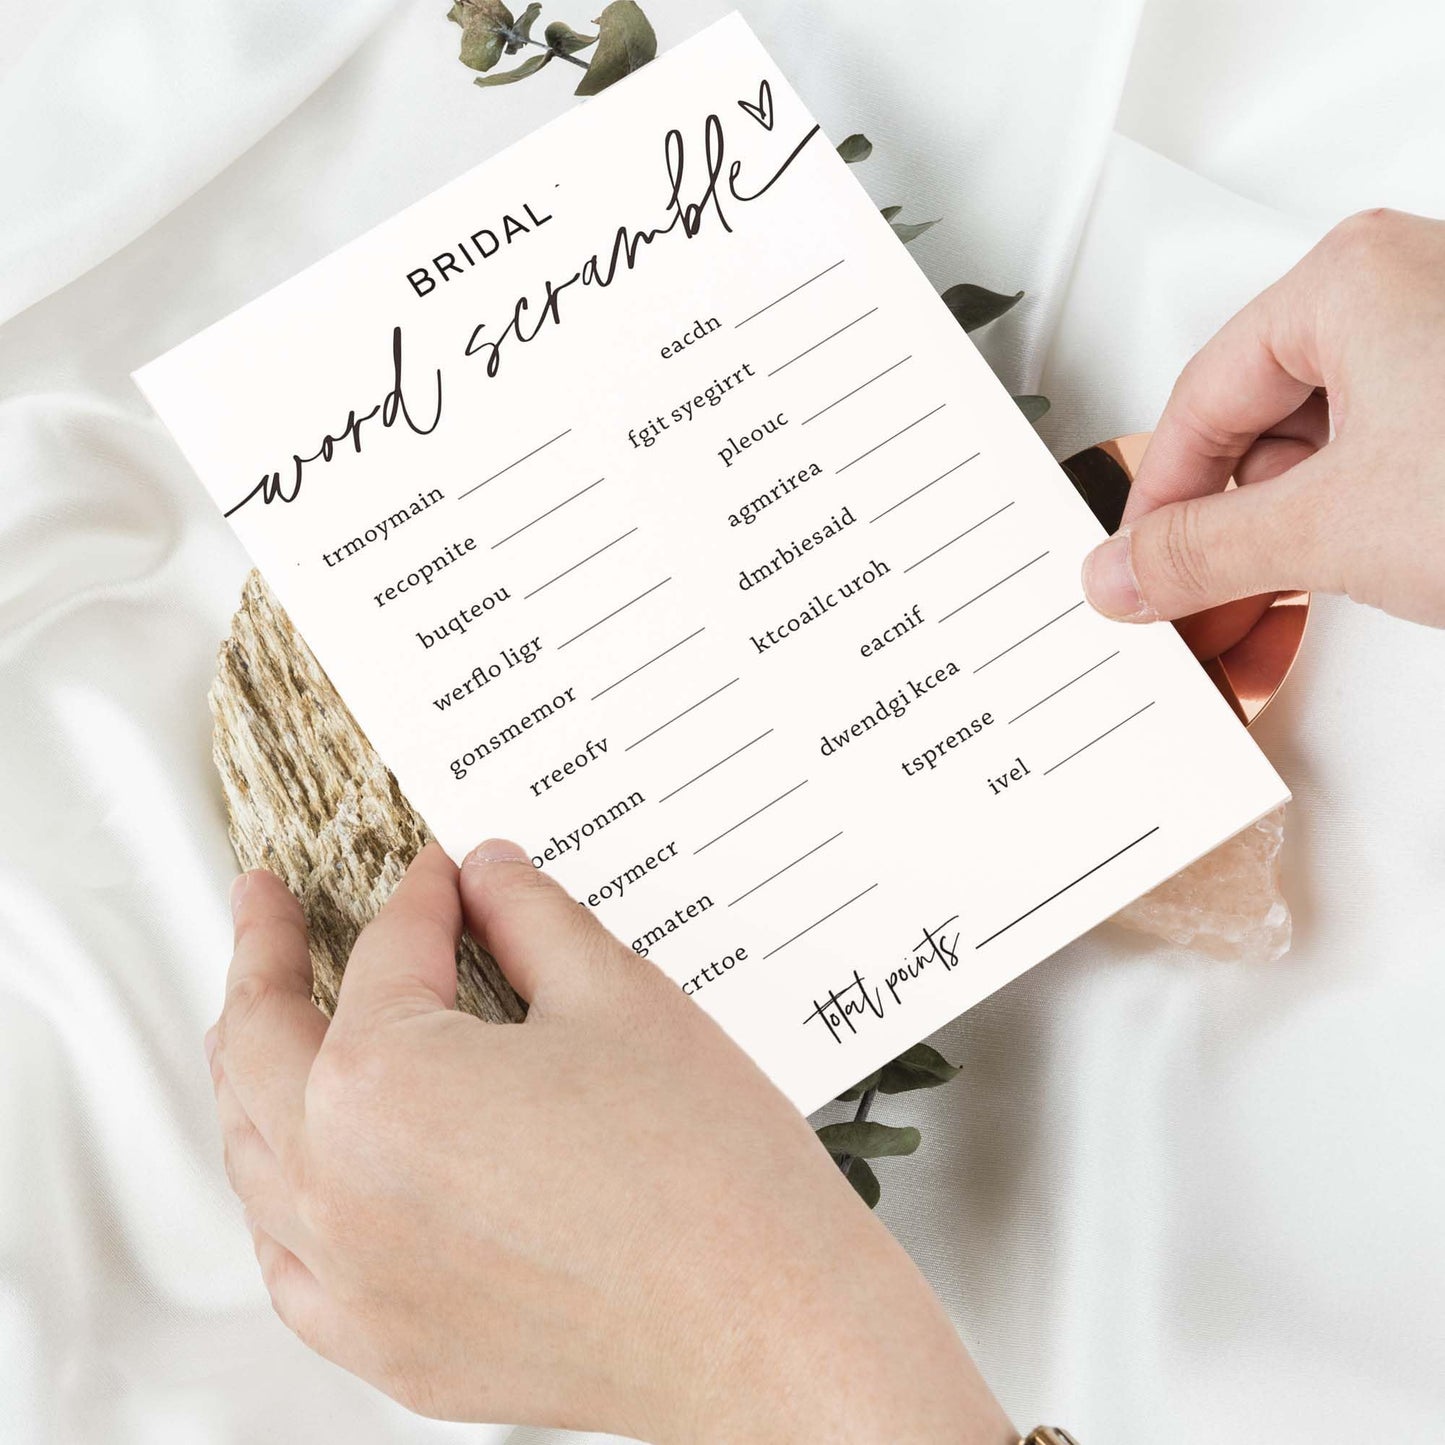 BRIDAL
word scramble
trmoymain
recopnite
buqteou
werflo ligr
gonsmemor
rreeofv
oehyonmn
eoymecr
gmaten
crttoe
eacdn
fgit syegirrt
pleouc
agmrirea
dmrbiesaid
ktcoailc uroh
eacnif
dwendgi kcea
tsprense
ivel
total points